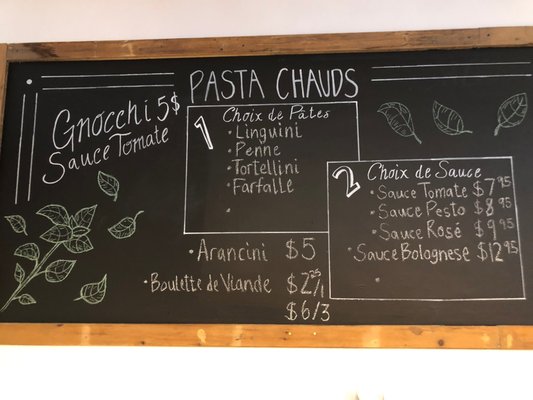 PASTA CHAUDS
Gnocchi 5$
Sauce Tomate
1 Choix de Pâtes
• Linguini
• Penne
• Tortellini
• Farfalle
•
2 Choix de Sauce
• Sauce Tomate $7.95
• Sauce Pesto $8.95
• Sauce Rosé $9.95
• Sauce Bolognese $12.95
•
• Arancini $5
• Boulette de Viande $2.25/1
$6/3